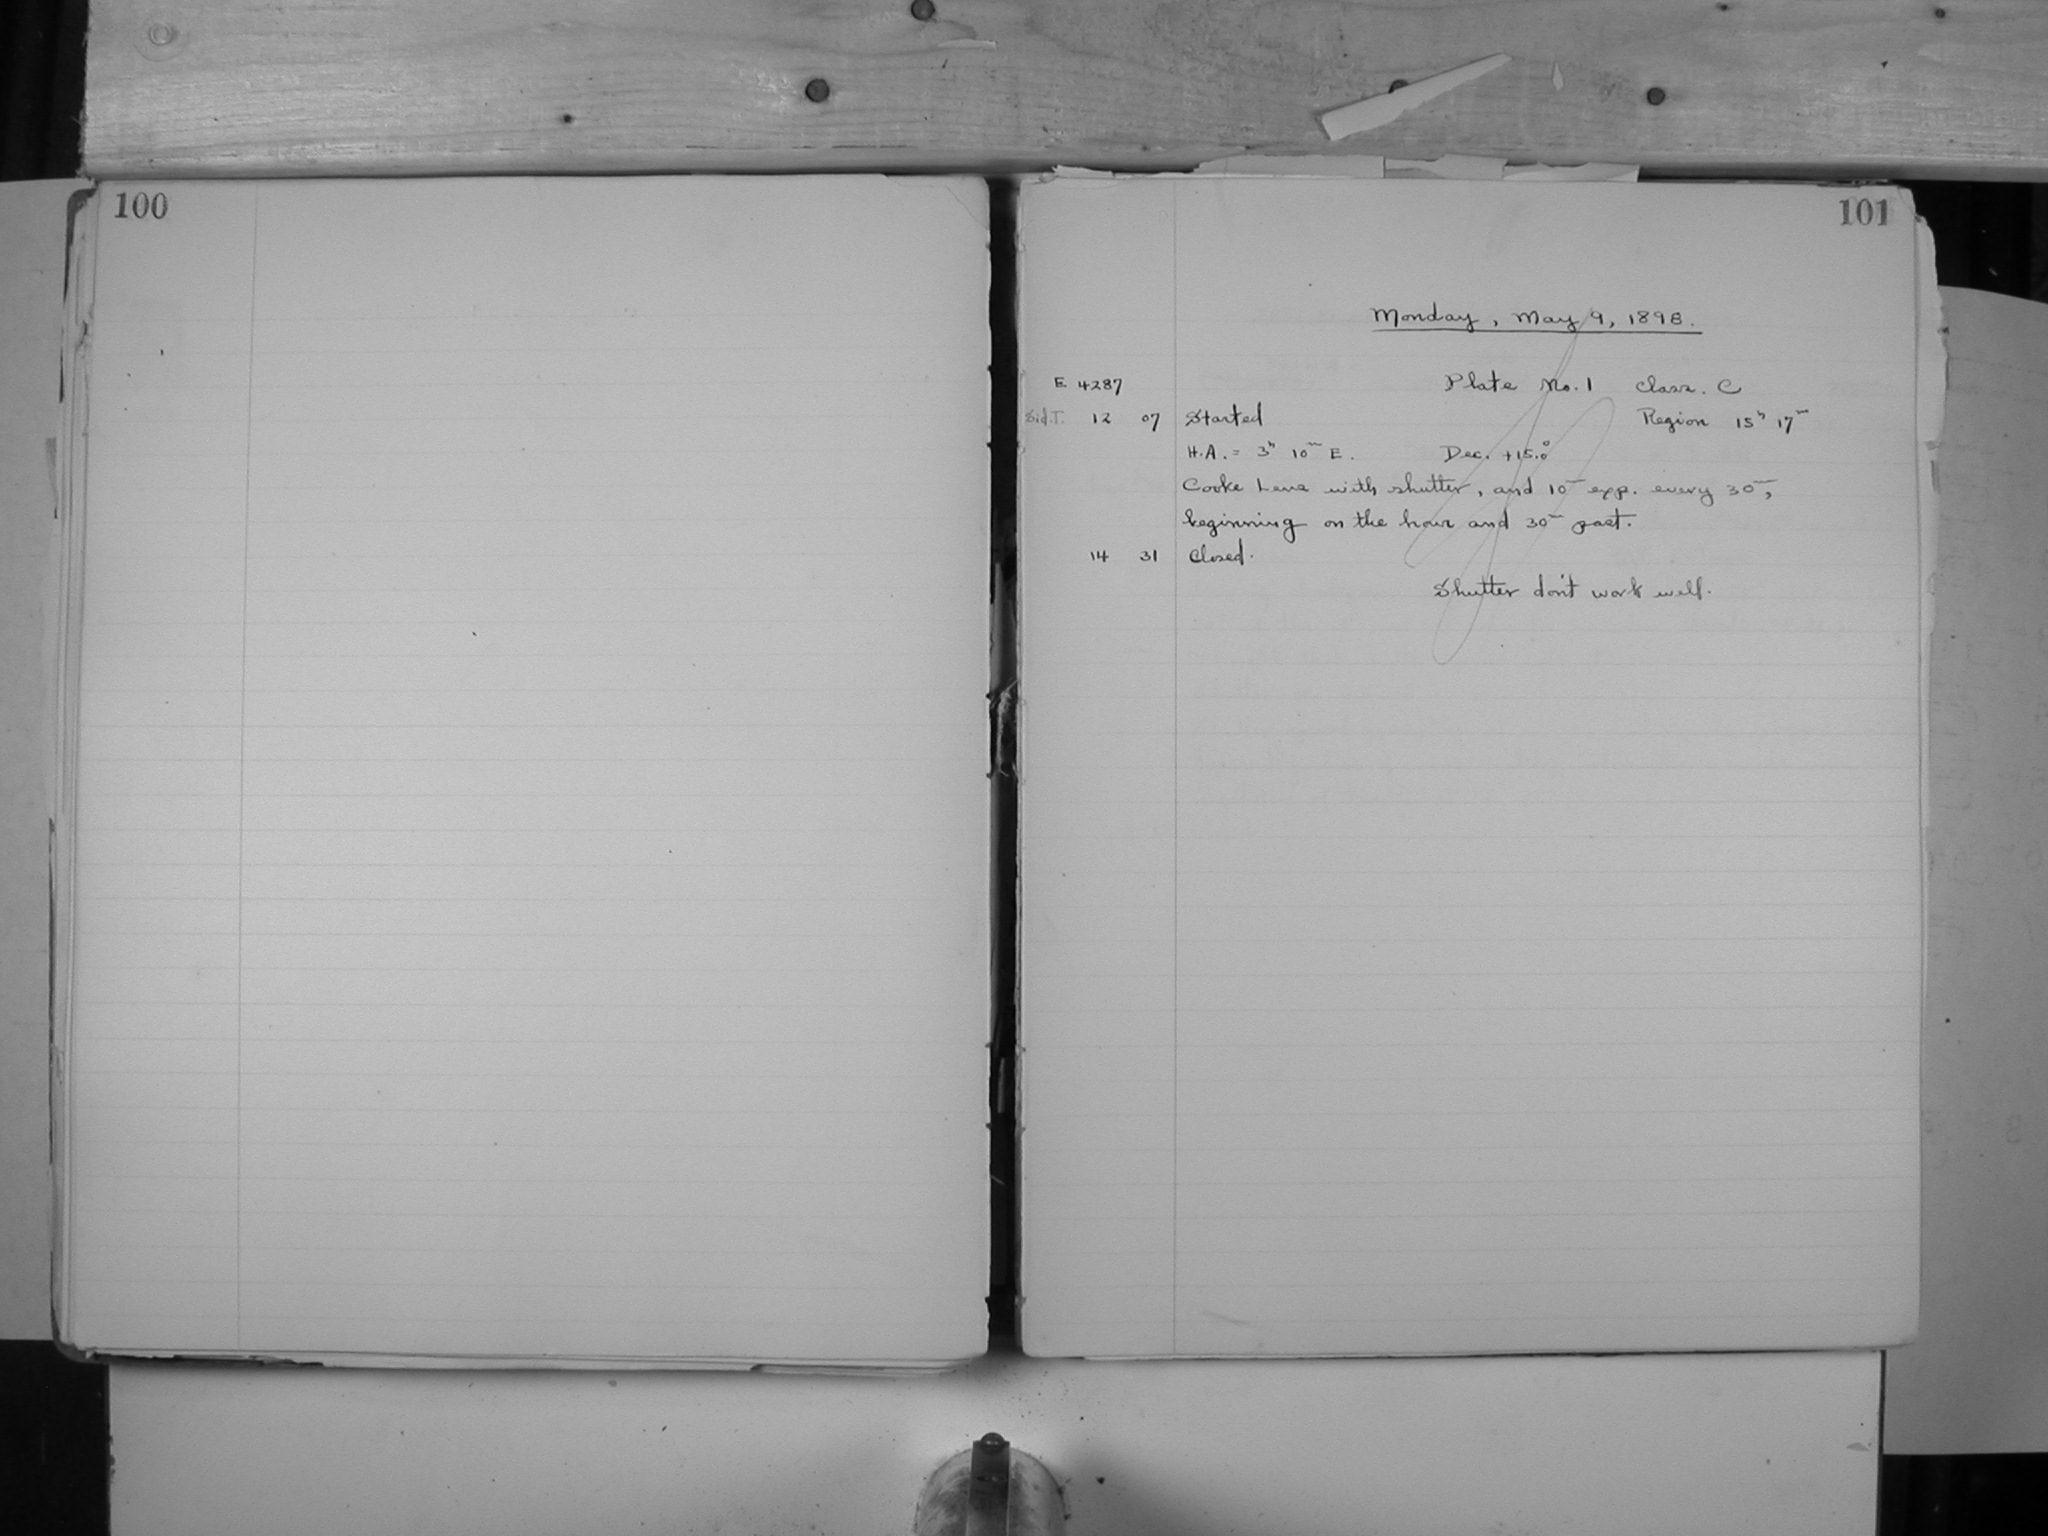 100
101
Monday, May 9, 1898.
E 4287 Plate No. 1 Class. C
Sid.T. 12 07 Started Region 15h 17m
H.A. = 3h 10m E. Dec. +15.°0
Cooke Lens with shutter, and 10m exp. every 30m,
beginning on the hour and 30m past.
14 31 Closed.
Shutter don't work well.